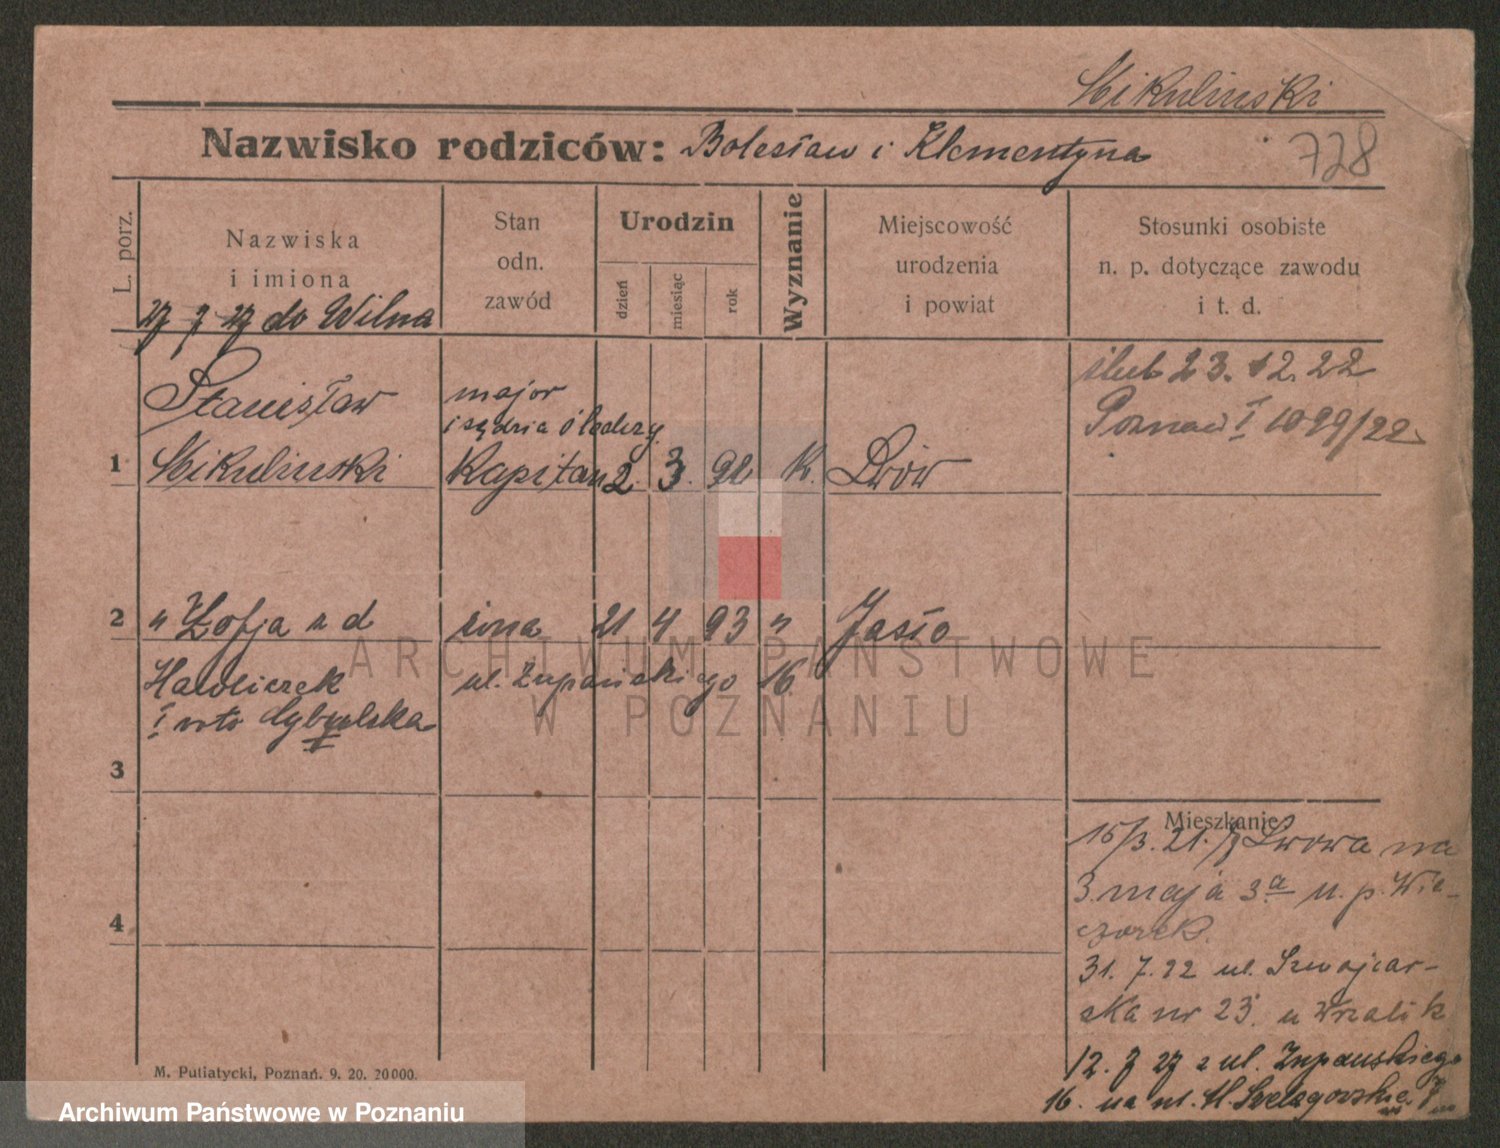 Mikulinski
Nazwisko rodziców: Bolesław i Klementyna
728
L. porz.
Nazwiska
i imiona
Stan
odn.
zawód
Urodzin
dzień
miesiąc
rok
Wyznanie
Miejscowość
urodzenia
i powiat
Stosunki osobiste
n. p. dotyczące zawodu
i t. d.
27 7 27 do Wilna
1
Stanisław
Mikulinski
major
i sędzia śledczy
Kapitan 2. 3. 92 K. Lwów
ślub 23. 12. 22
Poznań I 1099/22
2 " Zofja z d żona 21 4 93 " Jasło
Hawliczek ul. Żupańskiego 16
I voto
3
Mieszkanie
15/3. 21. z Lwowa na
3. maja 3a u. p. Wie-
czorek.
4
31. 7. 22 ul. Szwajcar-
ska nr 23. u Wrzalik
12. 7 27 z ul. Żupańskiego
16. na ul.
M. Putiatycki, Poznań. 9. 20. 20000.
ARCHIWUM PAŃSTWOWE
W POZNANIU
Archiwum Państwowe w Poznaniu